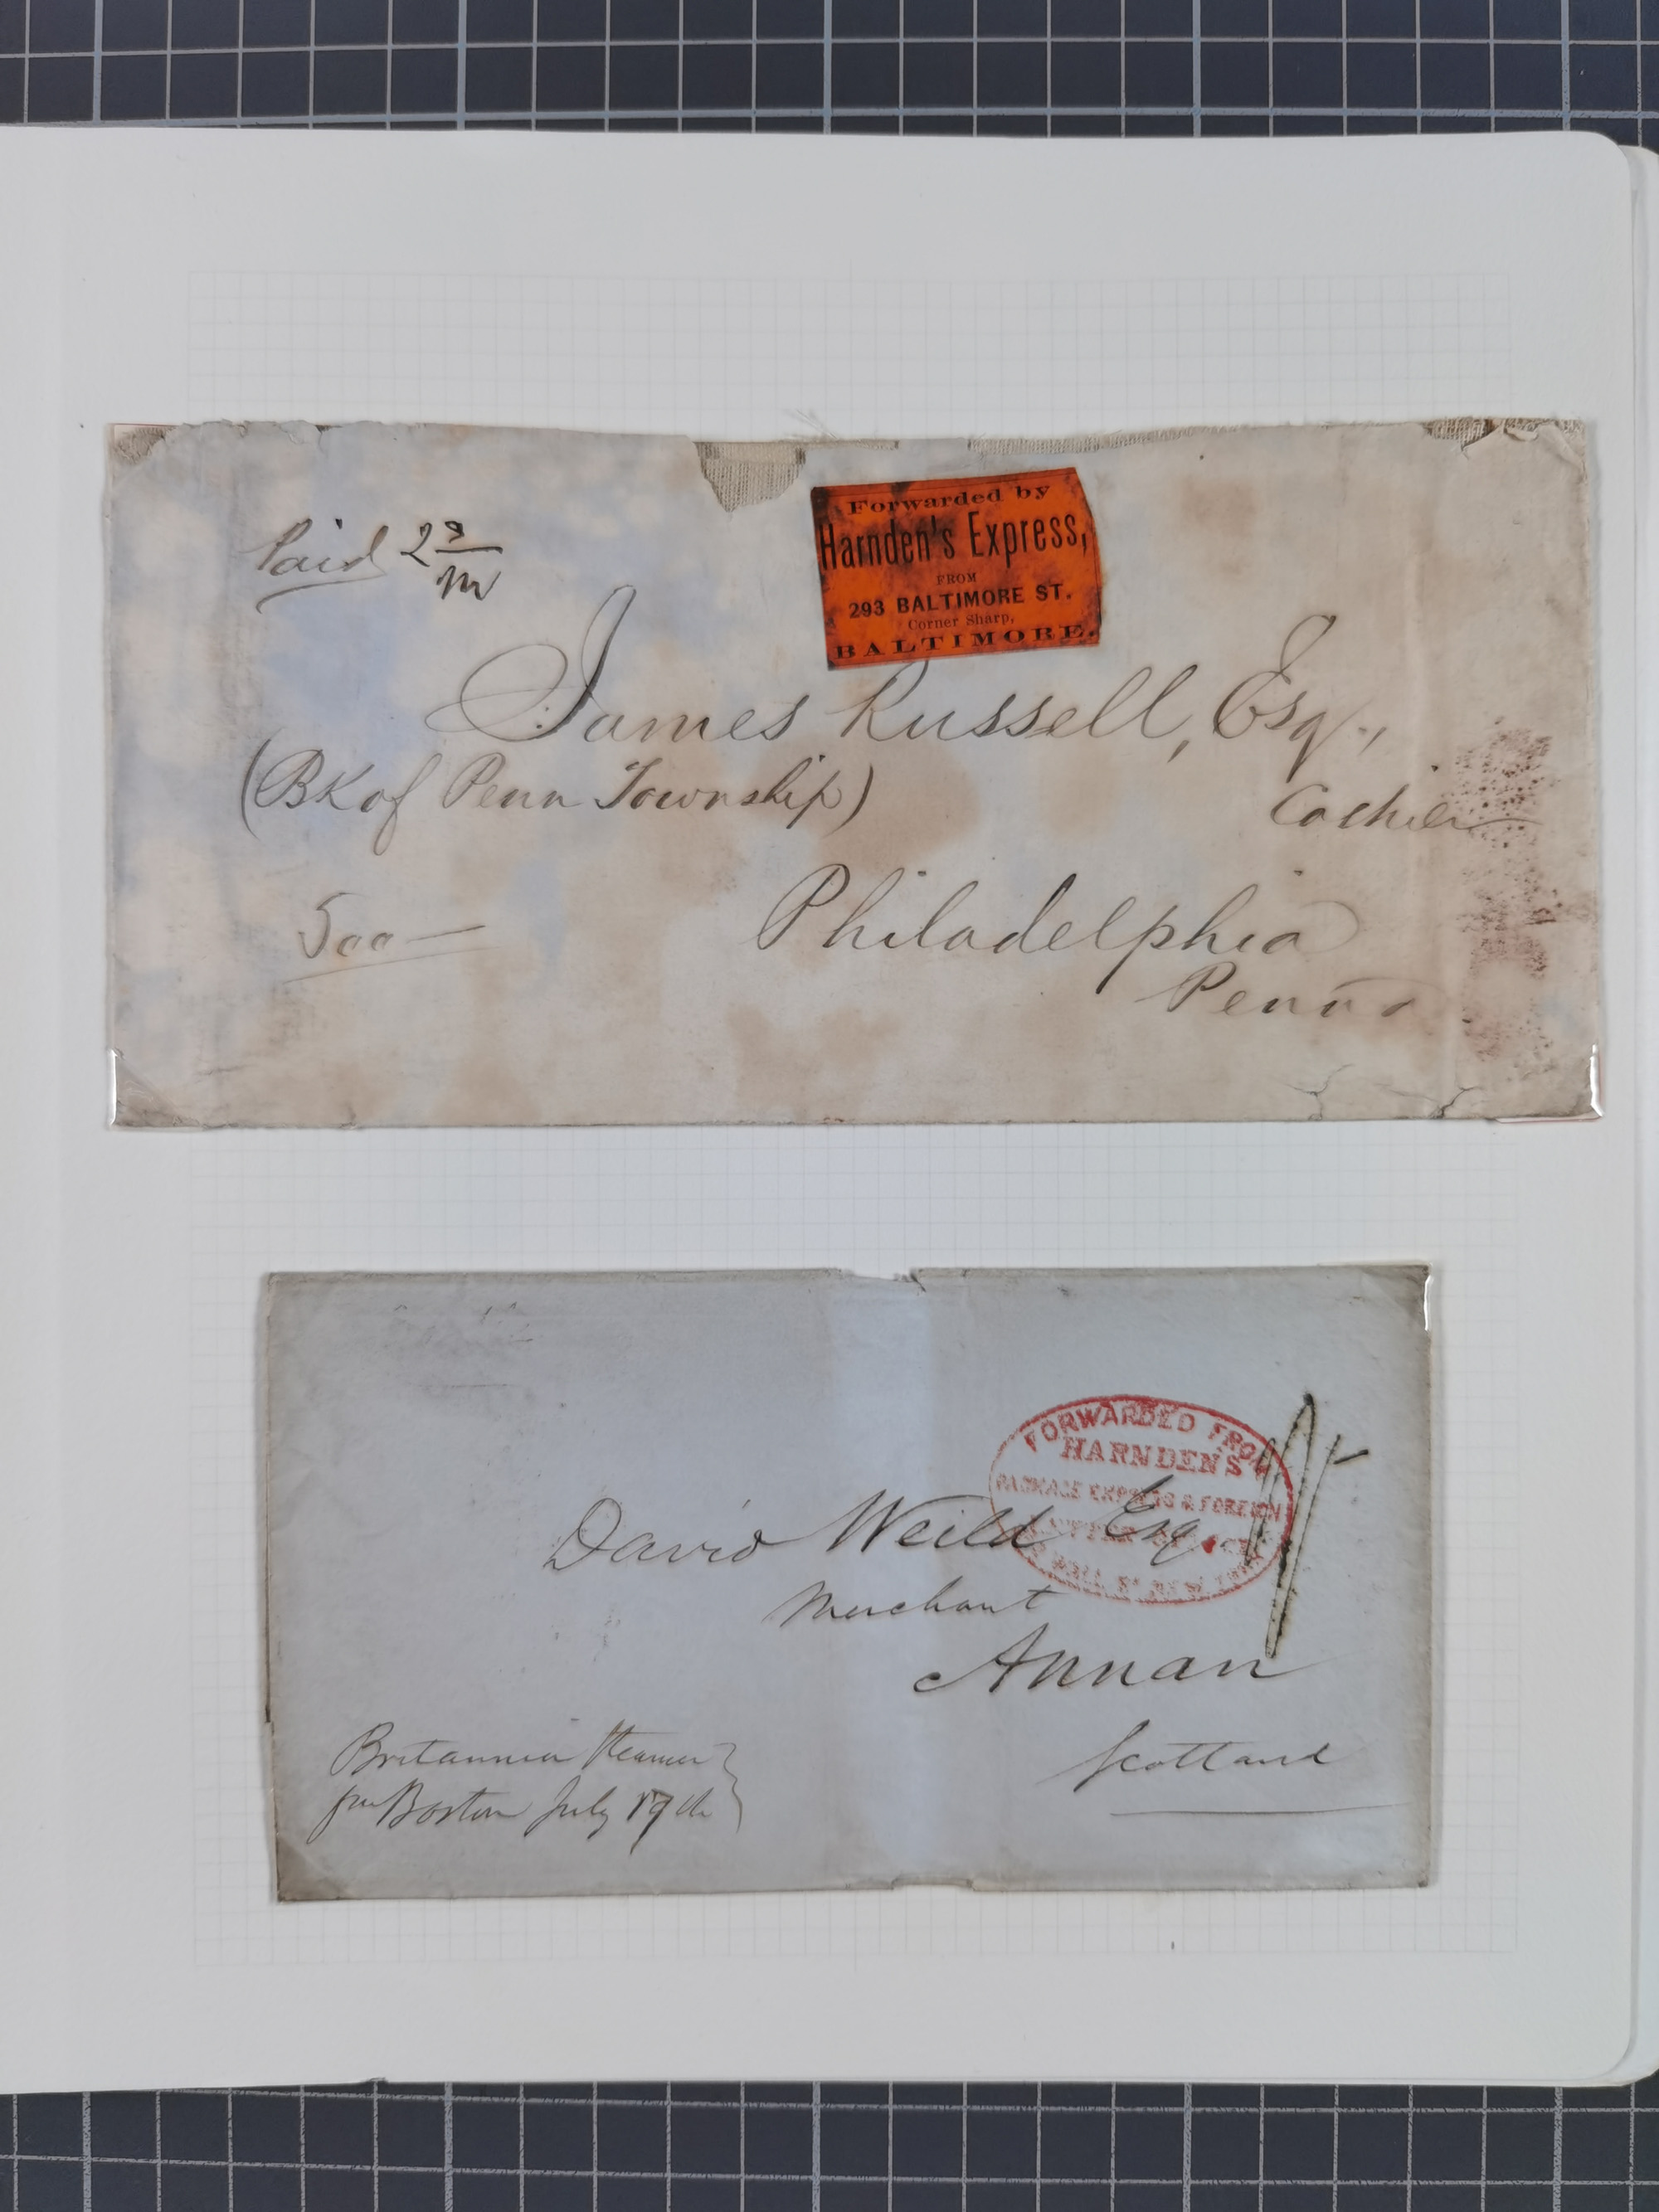 Paid 2
Forwarded by
Harnden's Express,
FROM
293 BALTIMORE ST.
Corner Sharp,
BALTIMORE.
James Russell, Esq.,
(BK of Penn Township)
Cashier
500 —
Philadelphia
Penna
FORWARDED FROM
HARNDEN'S
PACKAGE EXPRESS & FOREIGN
LETTER OFFICE
WALL ST NEW YORK
David Weild Esq.
Merchant
Annan
Scotland
Britannia Steamer
for Boston July 17th